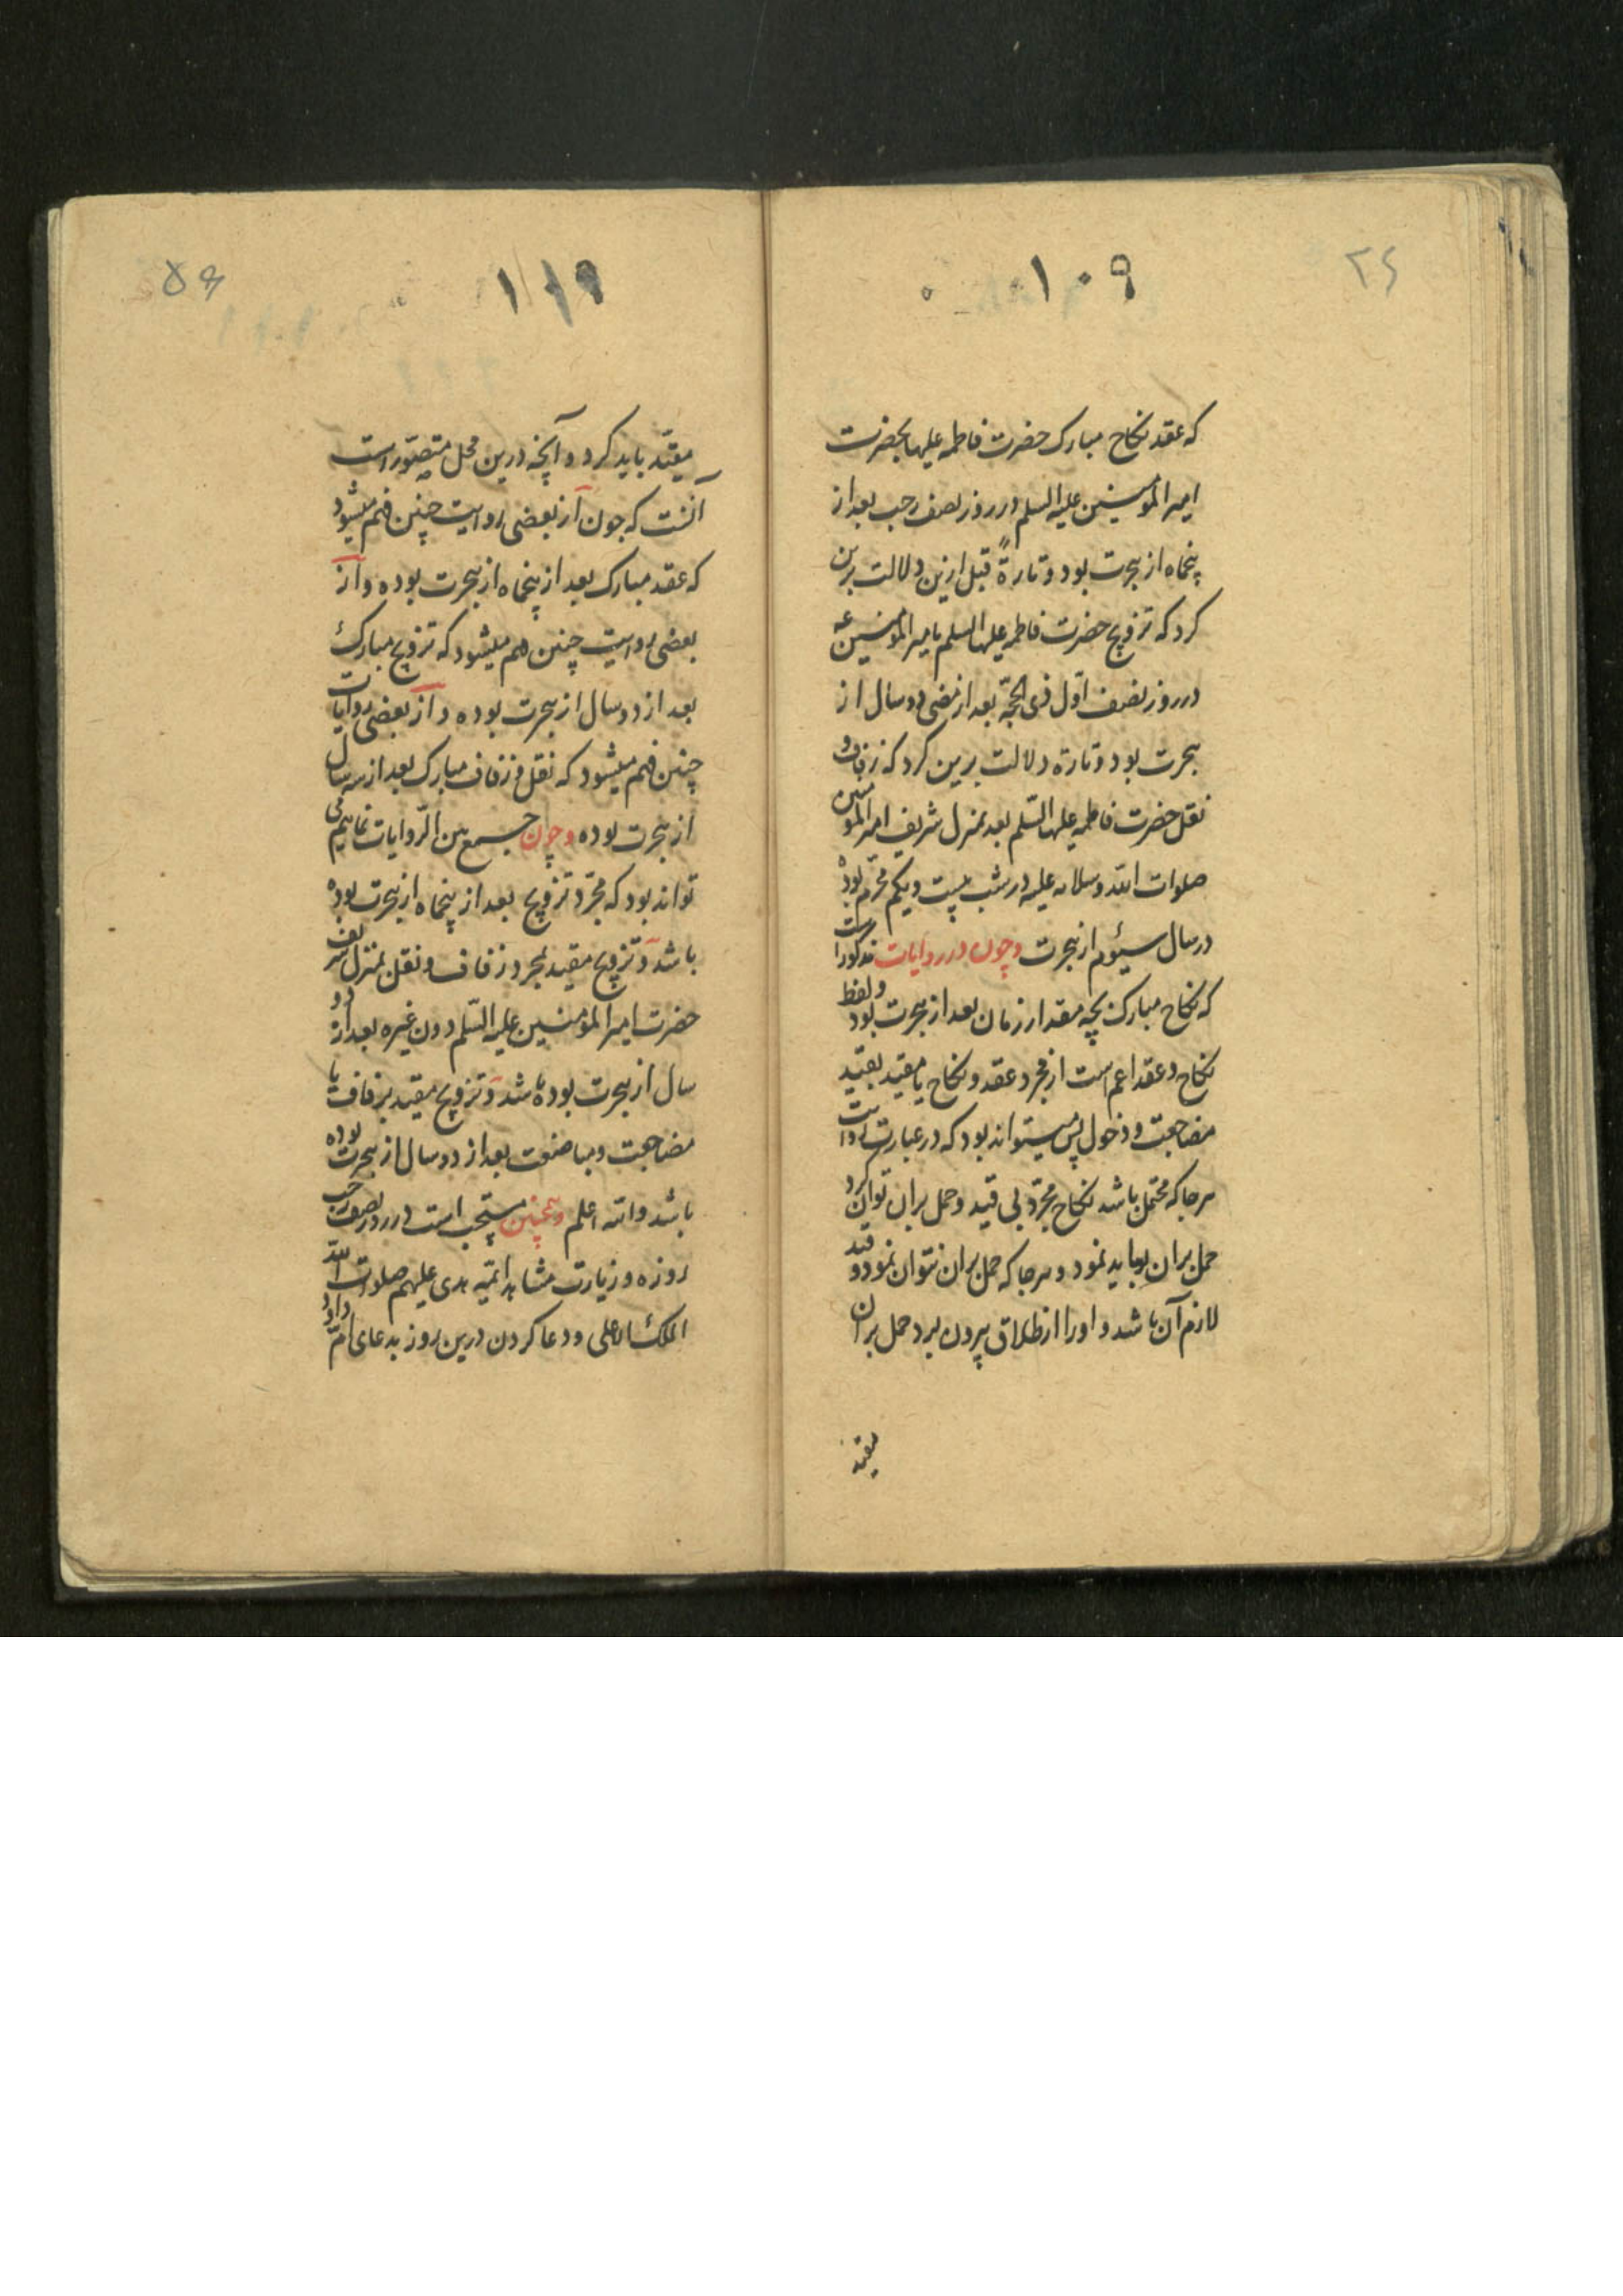 ۱۰۹
که عقد نکاح مبارک حضرت فاطمه علیها بحضرت
امیر المؤمنین علیه السلم در روز نصف رجب بعد از
پنجماه از هجرت بود و تارةً قبل ازین دلالت برین
کرد که تزویج حضرت فاطمه علیها السلم بامیر المؤمنین عه
در روز نصف اول ذی الحجّه بعد از مضی دو سال از
هجرت بود و تارة دلالت برین کرد که زفاف و
نقل حضرت فاطمه علیها السّلم بعد بمنزل شریف امیر المؤمنین
صلوات الله و سلامه علیه در شب بیست و یکم محرّم بوده
در سال سیّوم از هجرت و چون در روایات مذکور است
که نکاح مبارک بچه مقدار زمان بعد از هجرت بود و لفظ
نکاح و عقد اعم است از مجرد عقد و نکاح یا مقید بقید
مضاجعت و دخول پس میتواند بود که در عبارت روایت
هر جا که محتمل باشد نکاح مجرّد بی قید و حمل بران توان کرد
حمل بران بباید نمود و هر جا که حمل بران نتوان نمود و قید
لازم آن باشد و او را از اطلاق بیرون برد حمل بران
مقید
۵۶
مقیّد باید کرد و آنچه درین محل متصوّر است
آنست که چون از بعضی روایت چنین فهم میشود
که عقد مبارک بعد از پنجماه از هجرت بوده و از
بعضی روایت چنین فهم میشود که تزویج مبارک
بعد از دو سال از هجرت بوده و از بعضی روایات
چنین فهم میشود که نقل و زفاف مبارک بعد از سه سال
از هجرت بوده و چون جمع بین الرّوایات نماییم می
تواند بود که مجرّد تزویج بعد از پنجماه از هجرت بوده
باشد و تزویج مقید بمجرد زفاف و نقل بمنزل شریف
حضرت امیر المؤمنین علیه السّلم دون غیره بعد از دو
سال از هجرت بوده باشد و تزویج مقید بزفاف با
مضاجعت و مباضعت بعد از دو سال از هجرت بوده
باشد والله اعلم و همچنین مستحب است در روز نصف رجب
روزه و زیارت مشاهد ائمّه هدی علیهم صلوات الله
الملک الاعلی و دعا کردن درین روز بدعای امّ داود